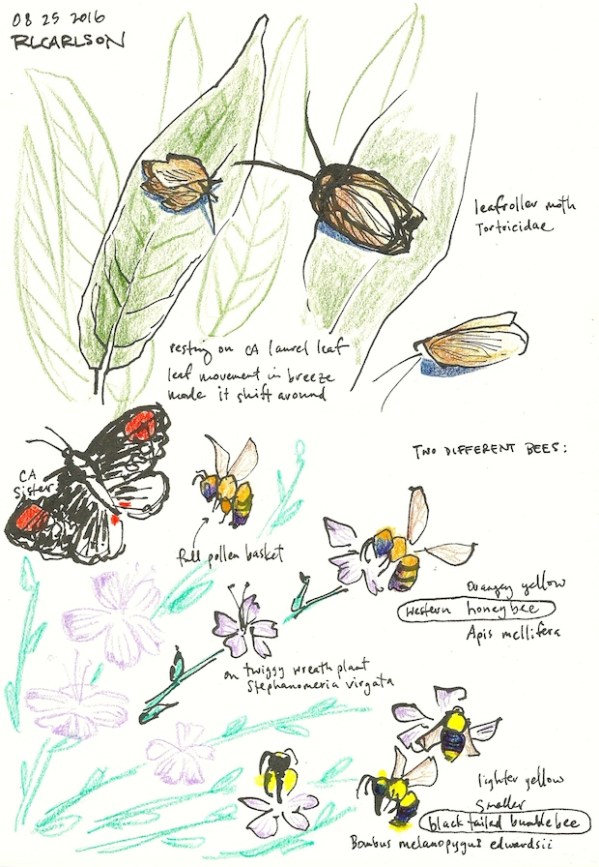 08 25 2016
RLCARLSON
leafroller moth
Tortricidae
resting on CA laurel leaf
leaf movement in breeze
made it shift around
CA
Sister
TWO DIFFERENT BEES:
full pollen basket
Orangey yellow
western honeybee
Apis mellifera
on twiggy wreath plant
Stephanomeria virgata
lighter yellow
smaller
black tailed bumblebee
Bombus melanopygus edwardsii